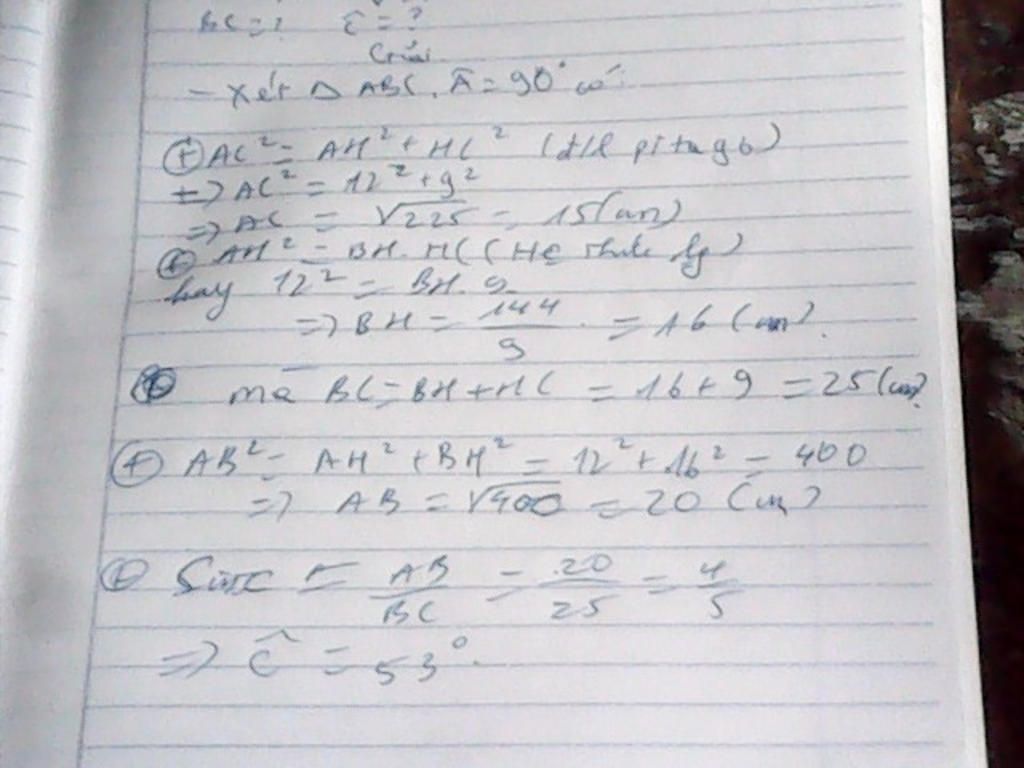 BC = ? Ĉ = ?
Giải
- Xét Δ ABC, Â = 90° có:
+ AC² = AH² + HC² (đ/l pitago)
=> AC² = 12² + 9²
=> AC = √225 = 15 (cm)
+ AH² = BH. HC (Hệ thức lg)
hay 12² = BH. 9
=> BH = 144/9 = 16 (cm).
mà BC = BH + HC = 16 + 9 = 25 (cm)
+ AB² = AH² + BH² = 12² + 16² = 400
=> AB = √400 = 20 (cm)
+ SinC = AB/BC = 20/25 = 4/5
=> Ĉ = 53°.